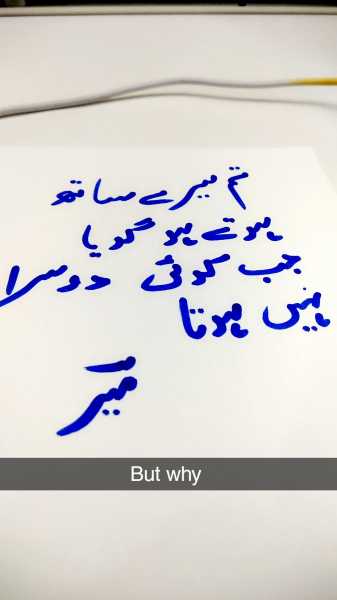 تم میرے ساتھ
ہوتے ہو گویا
جب کوئی دوسرا
نہیں ہوتا
میر
But why